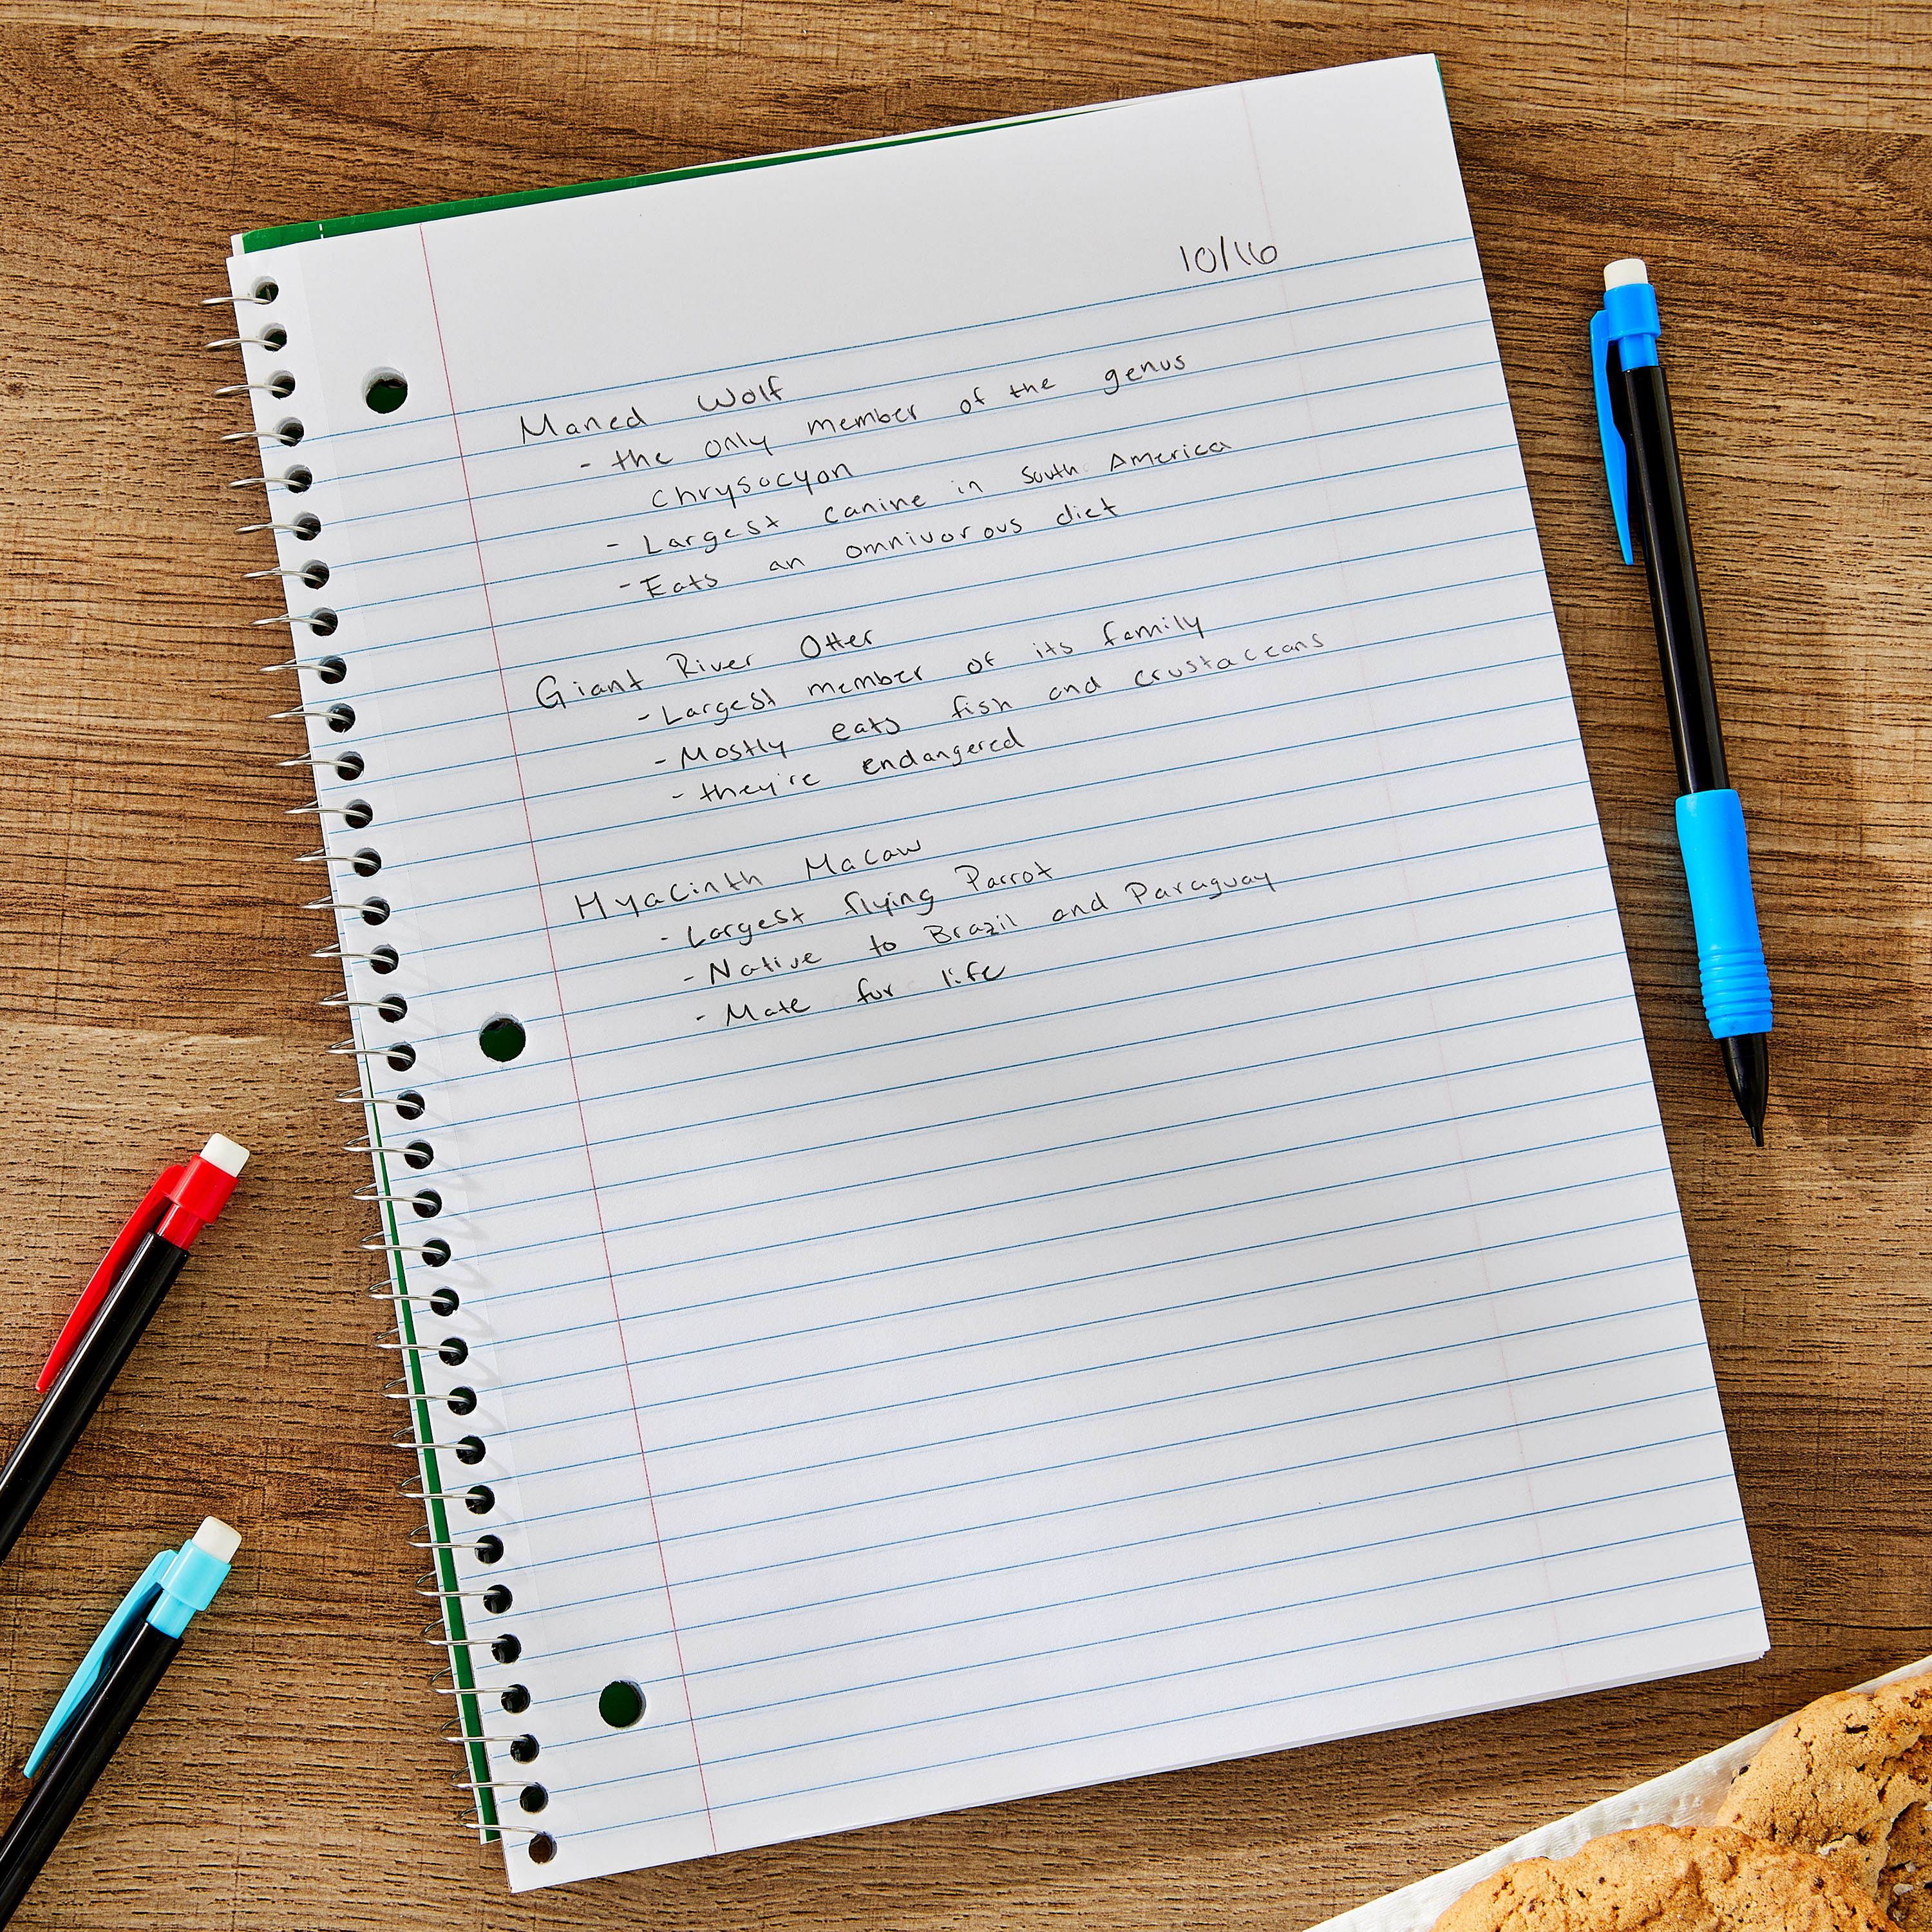 10/16
Maned Wolf
- the only member of the genus
chrysocyon
- Largest canine in South America
- Eats an omnivorous diet
Giant River Otter
- Largest member of its family
- Mostly eats fish and crustaceans
- they're endangered
Hyacinth Macaw
- Largest flying Parrot
- Native to Brazil and Paraguay
- Mate for life